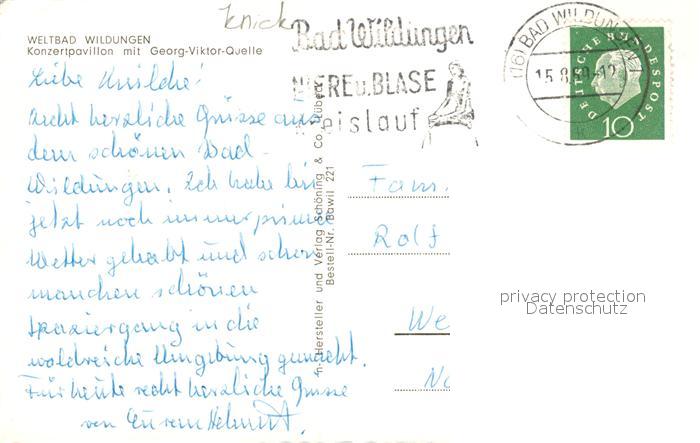 Knick
WELTBAD WILDUNGEN
Konzertpavillon mit Georg-Viktor-Quelle
Bad Wildungen
NIERE u. BLASE
Kreislauf
(16) BAD WILDUNGEN
15.8.59-12
DEUTSCHE BUNDESPOST
10
Liebe
recht herzliche Grüsse aus
dem schönen Bad-
Wildungen. Ich habe bis
jetzt noch immer prima
Wetter gehabt und schon
manchen schönen
Spaziergang in die
waldreiche Umgebung gemacht.
Für heute recht herzliche Grüsse
von Eurem Helmut.
Hersteller und Verlag Schöning & Co., Lübeck
Bestell-Nr. Bawil 221
Fam.
Rolf
We
No
privacy protection
Datenschutz